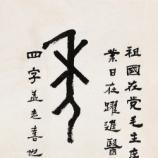 祖國在党毛主
業日在躍進醫
四字盖志喜也